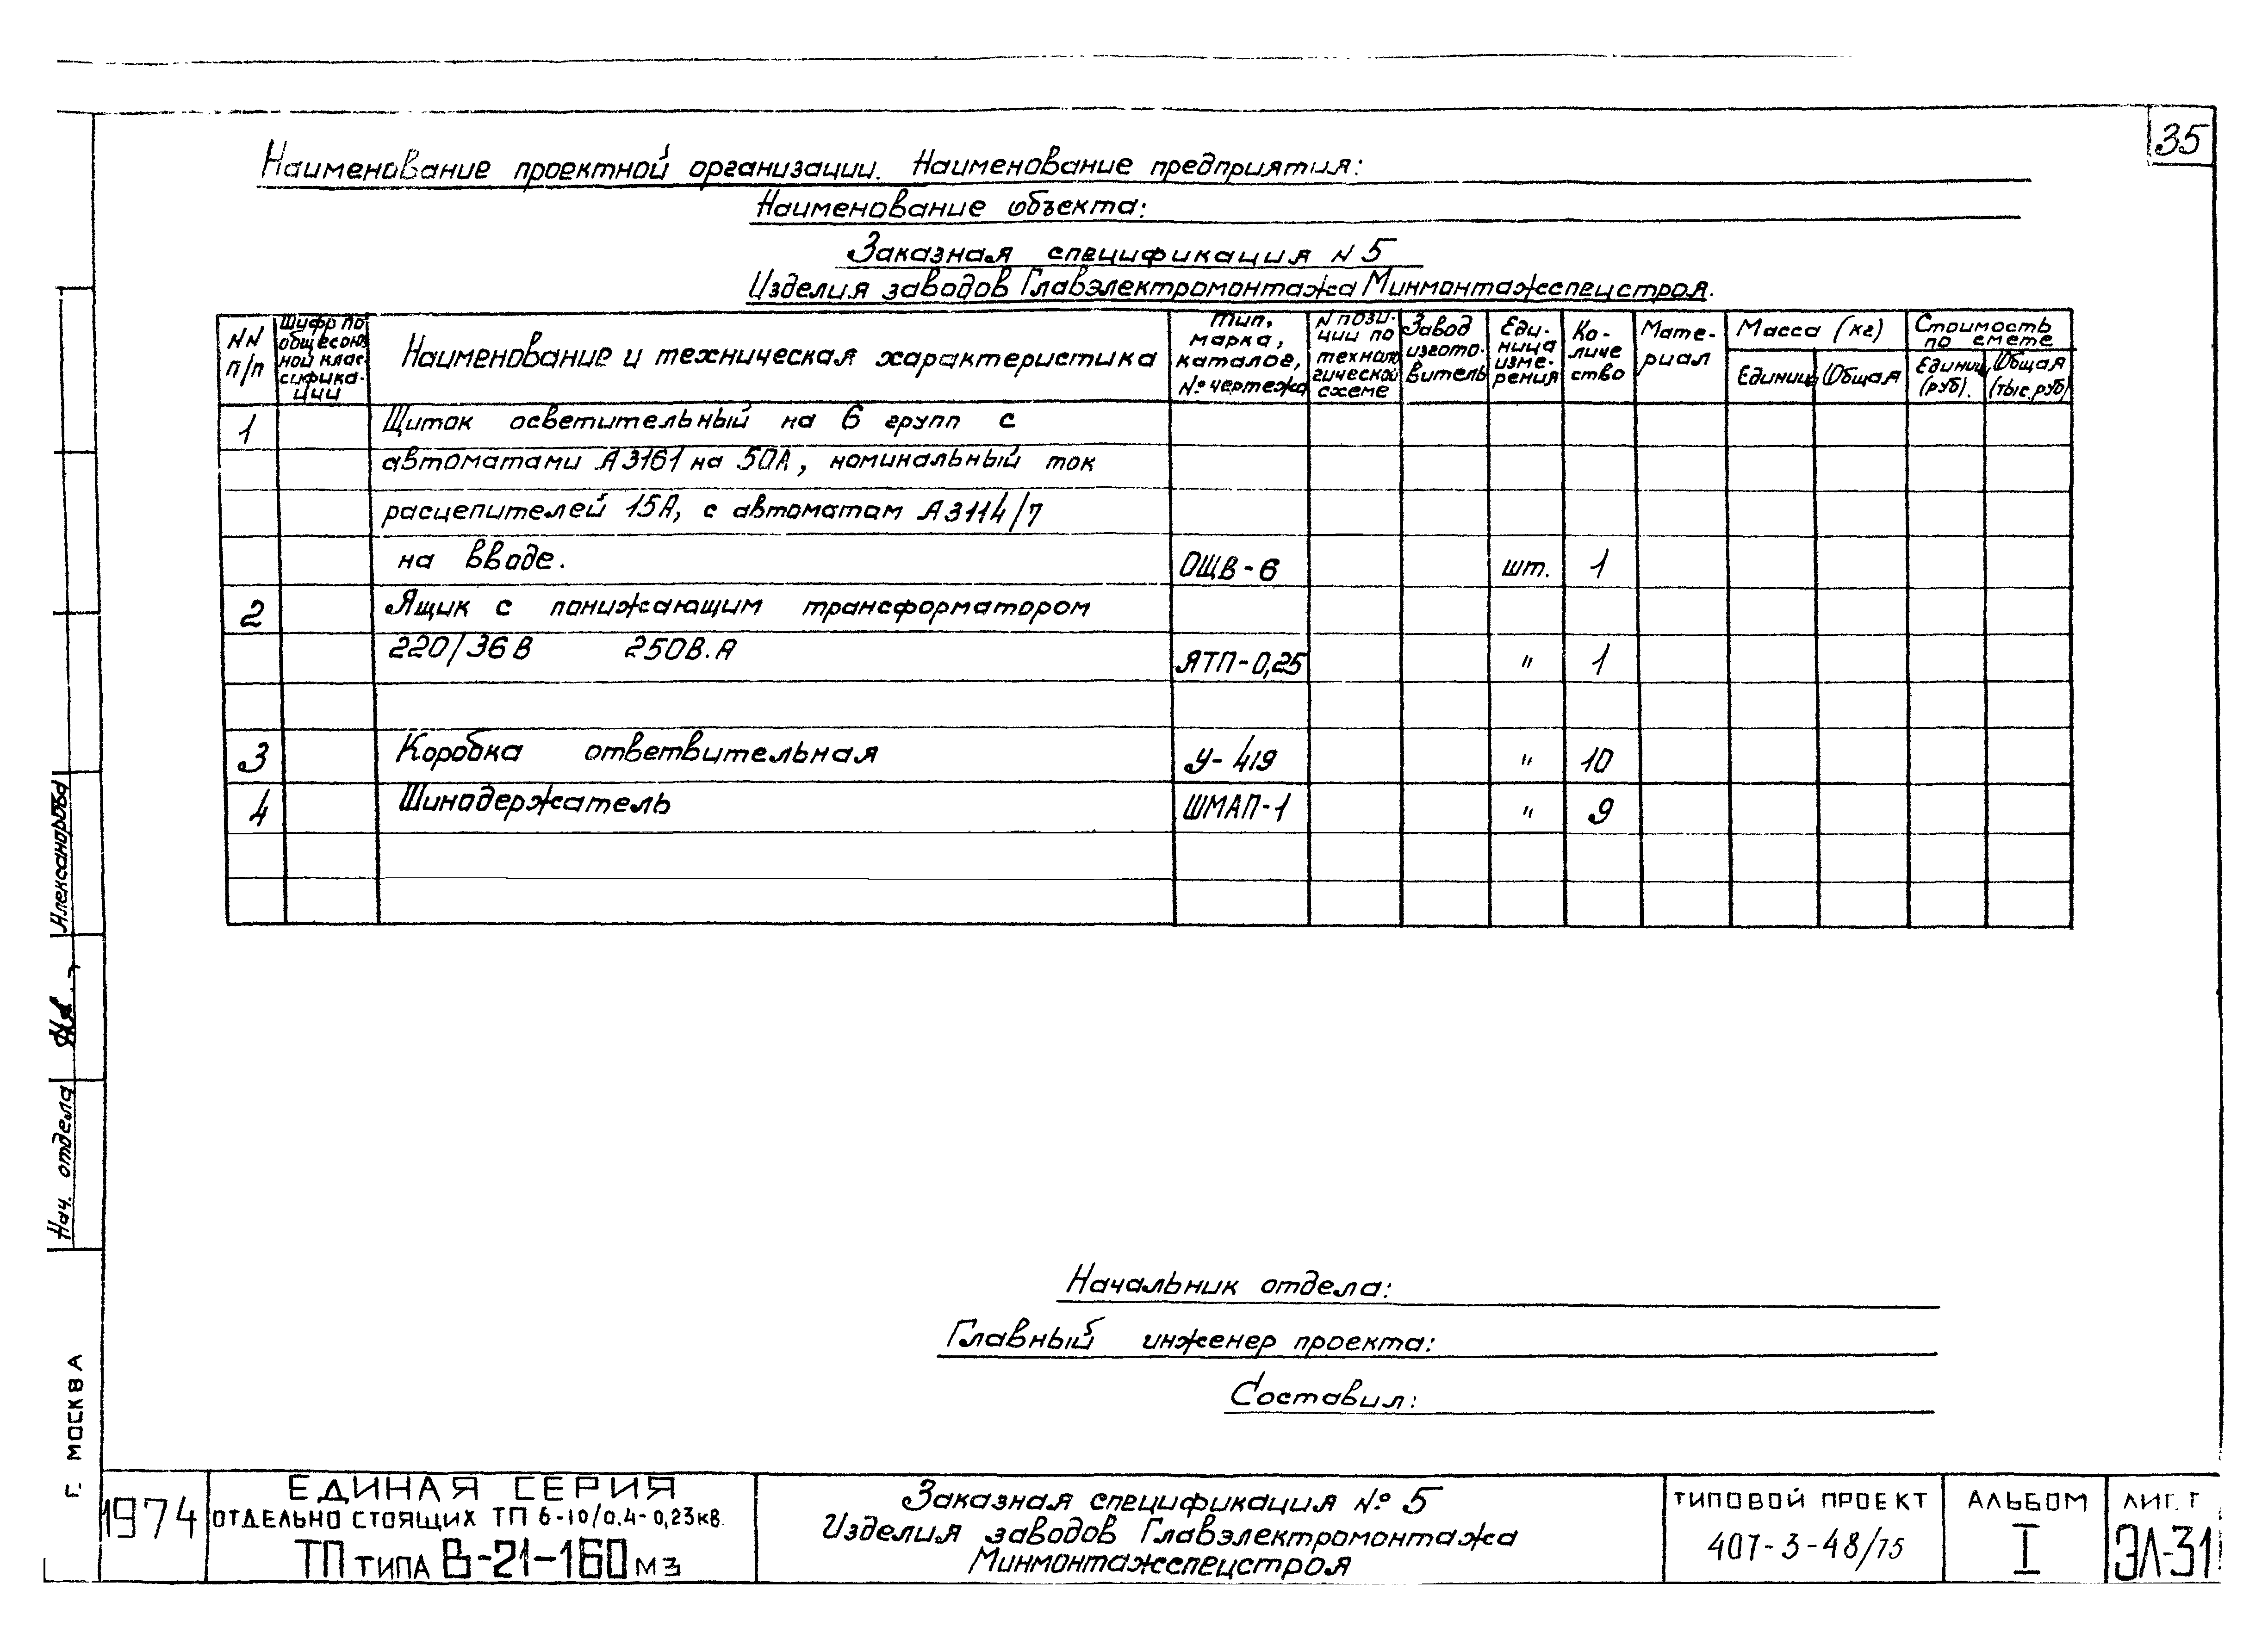 35
Наименование проектной организации. Наименование предприятия:
Наименование объекта:
Заказная спецификация N 5
Изделия заводов Главэлектромонтажа Минмонтажспецстроя.
NN п/п
Шифр по общесоюзной классификации
Наименование и техническая характеристика
Тип, марка, каталог, № чертежа
N позиции по технологической схеме
Завод изготовитель
Единица измерения
Количество
Материал
Масса (кг)
Единиц Общая
Стоимость по смете
Единиц (руб). Общая (тыс.руб)
1 Щиток осветительный на 6 групп с
автоматами А3161 на 50А, номинальный ток
расцепителей 15А, с автоматом А3114/7
на вводе. ОЩВ-6 шт. 1
2 Ящик с понижающим трансформатором
220/36В 250В.А ЯТП-0,25 " 1
3 Коробка ответвительная У-419 " 10
4 Шинодержатель ШМАП-1 " 9
Начальник отдела:
Главный инженер проекта:
Составил:
Александрова
Нач. отдела
Г. МОСКВА
1974
ЕДИНАЯ СЕРИЯ
ОТДЕЛЬНО СТОЯЩИХ ТП 6-10/0,4-0,23кв.
ТП ТИПА В-21-160М3
Заказная спецификация № 5
Изделия заводов Главэлектромонтажа
Минмонтажспецстроя
ТИПОВОЙ ПРОЕКТ
407-3-48/75
АЛЬБОМ
I
ЛИСТ
ЭЛ-31